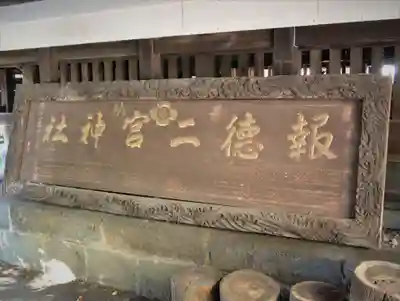 報徳二宮神社